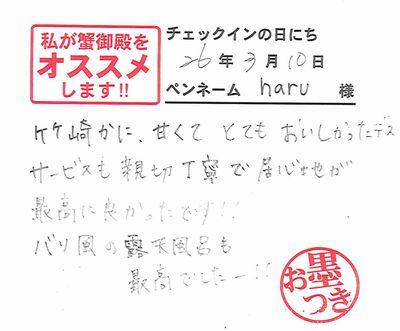 私が蟹御殿を
オススメ
します!!
チェックインの日にち
26年3月10日
ペンネーム haru 様
竹崎かに、甘くて とても おいしかったデス
サービスも親切丁寧で居心地が
最高に良かったです!!
バリ風の露天風呂も
最高でしたー!!
お墨つき